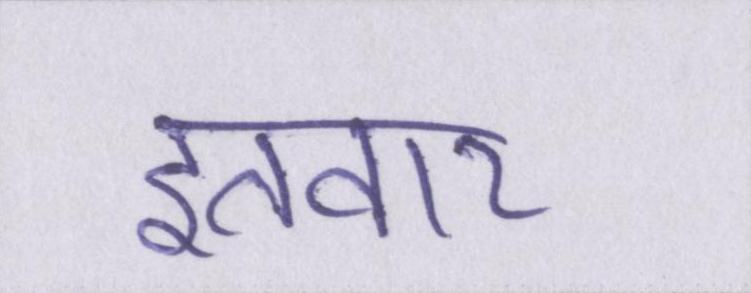 इतवार